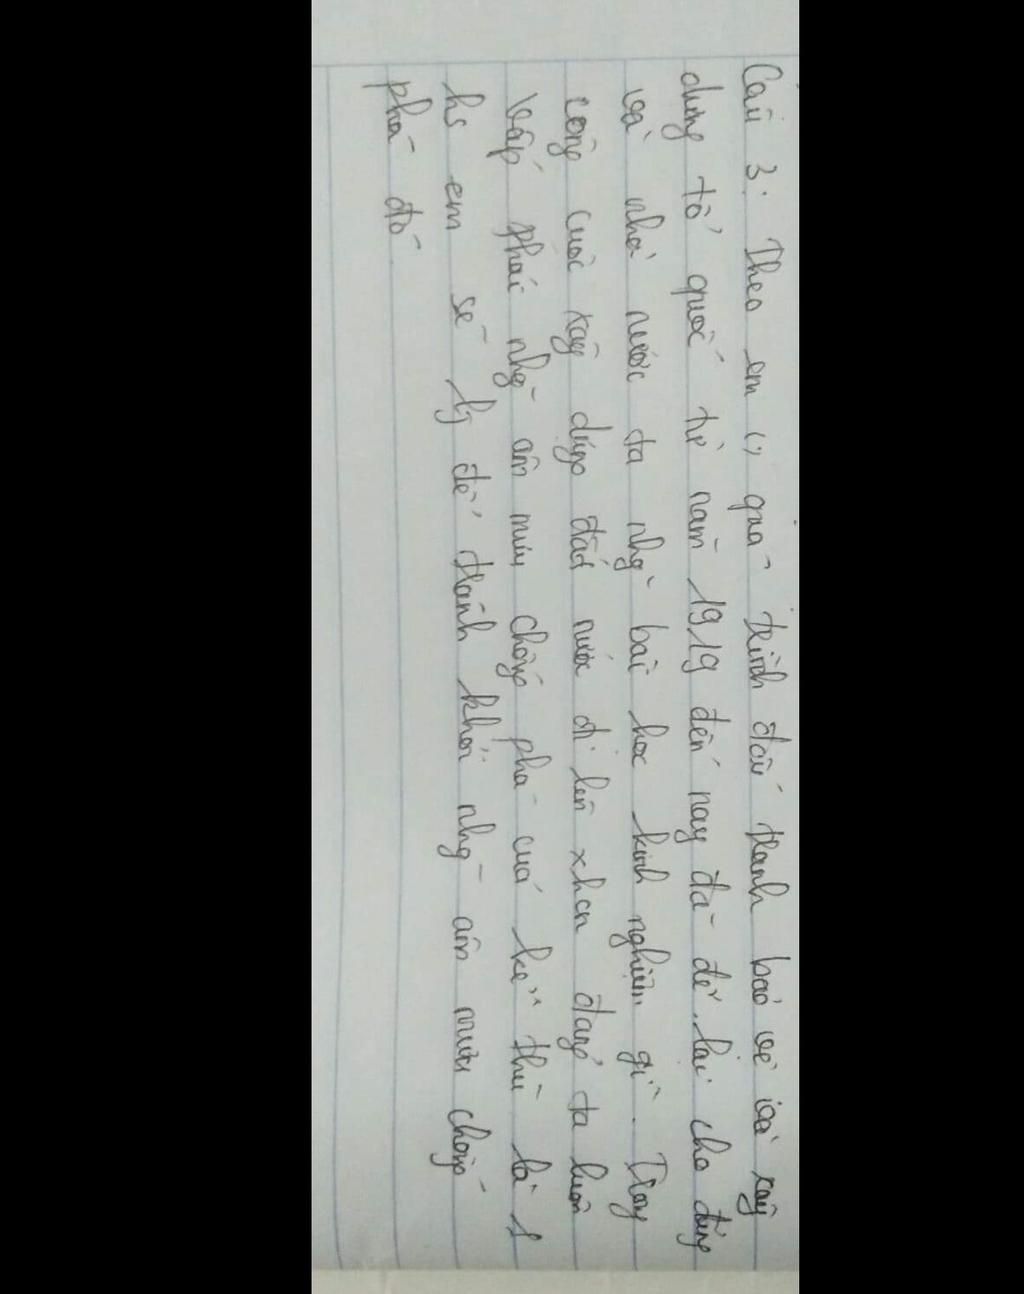 Câu 3: Theo em () quá trình đấu tranh bảo vệ và xây
dựng tổ quốc từ năm 1919 đến nay đã để lại cho đảng
và nhà nước ta nhg~ bài học kinh nghiệm gì. Trong
công cuộc xây dựng đất nước đi lên xhcn đảng ta luôn
vấp phải nhg~ âm mưu chống phá của kẻ thù là 1
hs em sẽ lý để tránh khỏi nhg~ âm mưu chống
phá đó